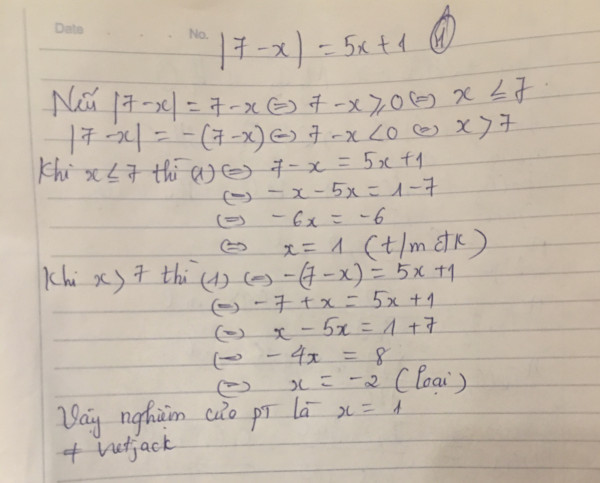 Date No. |7-x| = 5x+1 (1)
Nếu |7-x| = 7-x ⇔ 7-x ≥ 0 ⇔ x ≤ 7
|7-x| = -(7-x) ⇔ 7-x < 0 ⇔ x > 7
Khi x ≤ 7 thì (1) ⇔ 7-x = 5x+1
⇔ -x-5x = 1-7
⇔ -6x = -6
⇔ x = 1 (t/m đk)
Khi x > 7 thì (1) ⇔ -(7-x) = 5x+1
⇔ -7+x = 5x+1
⇔ x-5x = 1+7
⇔ -4x = 8
⇔ x = -2 (loại)
Vậy nghiệm của PT là x = 1
# netjack